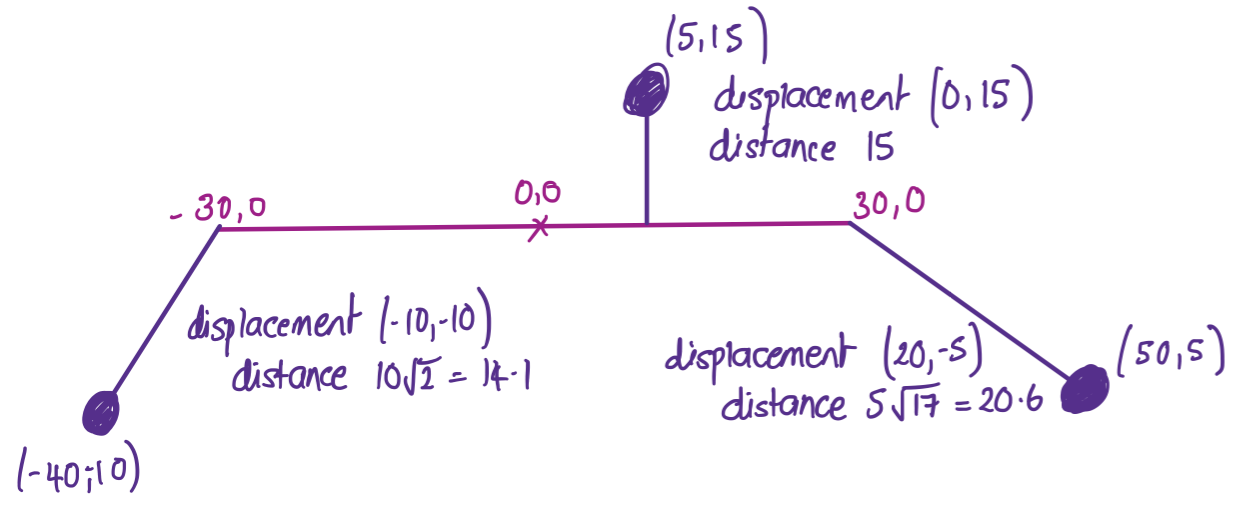 (5,15)
displacement (0,15)
distance 15
-30,0
0,0
30,0
displacement (-10,-10)
distance 10√2 = 14.1
displacement (20,-5)
distance 5√17 = 20.6
(50,5)
(-40,-10)